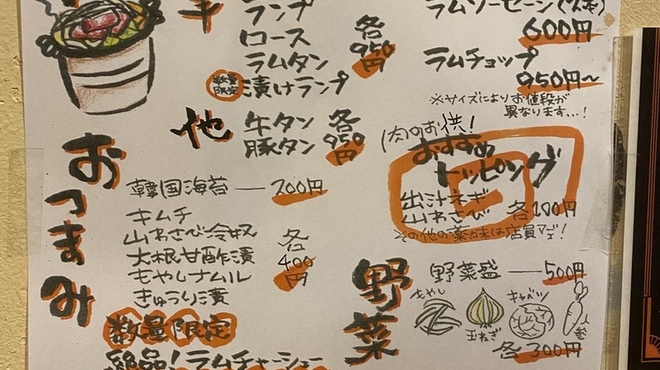 羊
ランプ
ロース
ラムタン
各950円
数量限定 漬けランプ
ラムソーセージ(2本)
600円
ラムチョップ
950円〜
※サイズによりお値段が
異なります…!
他
牛タン
豚タン
各950円
肉のお供!
おすすめ
トッピング
出汁ネギ
山わさび
各100円
その他の薬味は店員マデ!
おつまみ
韓国海苔 — 200円
キムチ
山わさび冷奴
大根甘酢漬
もやしナムル
きゅうり漬
各400円
数量限定
絶品!ラムチャーシュー
野菜
野菜盛 — 500円
もやし
玉ねぎ
キャベツ
人参
各300円